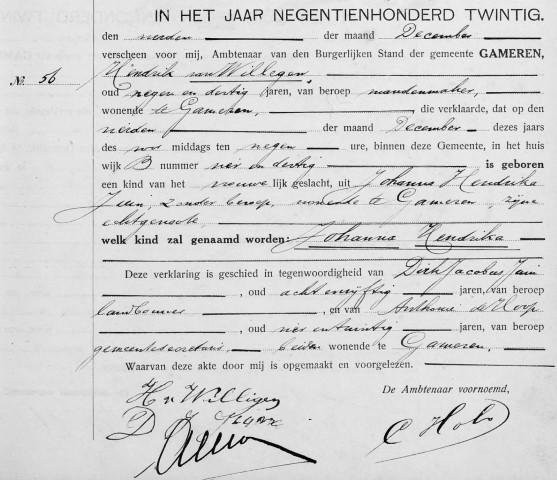 IN HET JAAR NEGENTIENHONDERD TWINTIG.
den vierden der maand December
verscheen voor mij, Ambtenaar van den Burgerlijken Stand der gemeente GAMEREN,
No. 56 Hendrik van Willegen,
oud negen en dertig jaren, van beroep mandenmaker,
wonende te Gameren, die verklaarde, dat op den
vierden der maand December dezes jaars
des voor middags ten negen ure, binnen deze Gemeente, in het huis
wijk B nummer vier en dertig is geboren
een kind van het vrouwelijk geslacht, uit Johanna Hendrika
zonder beroep, wonende te Gameren, zijne
echtgenoote,
welk kind zal genaamd worden: Johanna Hendrika
Deze verklaring is geschied in tegenwoordigheid van Dirk Jacobus
, oud acht en vijftig jaren, van beroep
landbouwer, en van Anthonie de
, oud vier en twintig jaren, van beroep
gemeentesecretaris, beiden wonende te Gameren,
Waarvan deze akte door mij is opgemaakt en voorgelezen.
De Ambtenaar voornoemd,
H v Willigen
D J
C Hobo